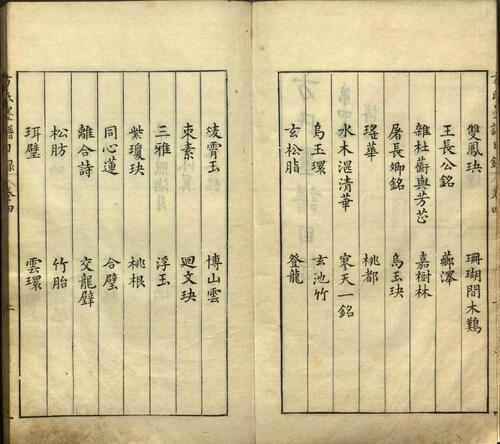 雙鳳玦 珊瑚間木難
王長公銘 薌澤
雜杜蘅與芳芷 嘉樹林
屠長卿銘 烏玉玦
瑤華 桃都
水木湛清華 寥天一銘
烏玉環 玄池竹
玄松脂 登龍
綾霄玉 博山雲
束素 迴文玦
三雅 浮玉
紫瓊玦 桃根
同心蓮 合璧
離合詩 交龍璧
松肪 竹胎
珥璧 雲環
方氏墨譜目錄 卷四 二